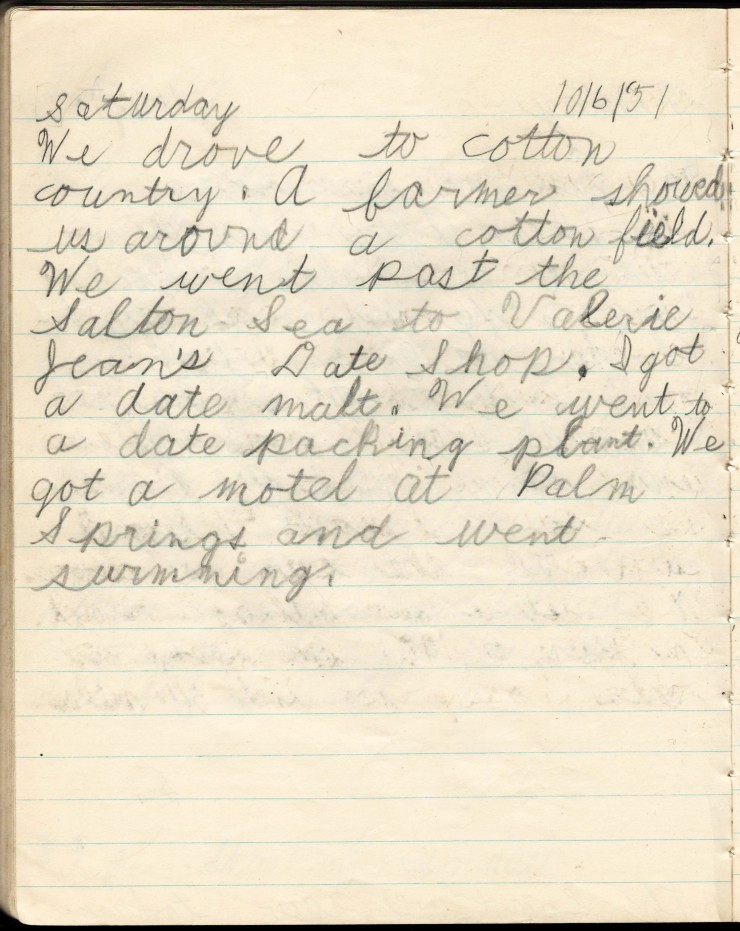 Saturday 10/6/51
We drove to cotton
country. A farmer showed
us around a cotton field.
We went past the
Salton Sea to Valerie
Jean's Date Shop. I got
a date malt. We went to
a date packing plant. We
got a motel at Palm
Springs and went
swimming.